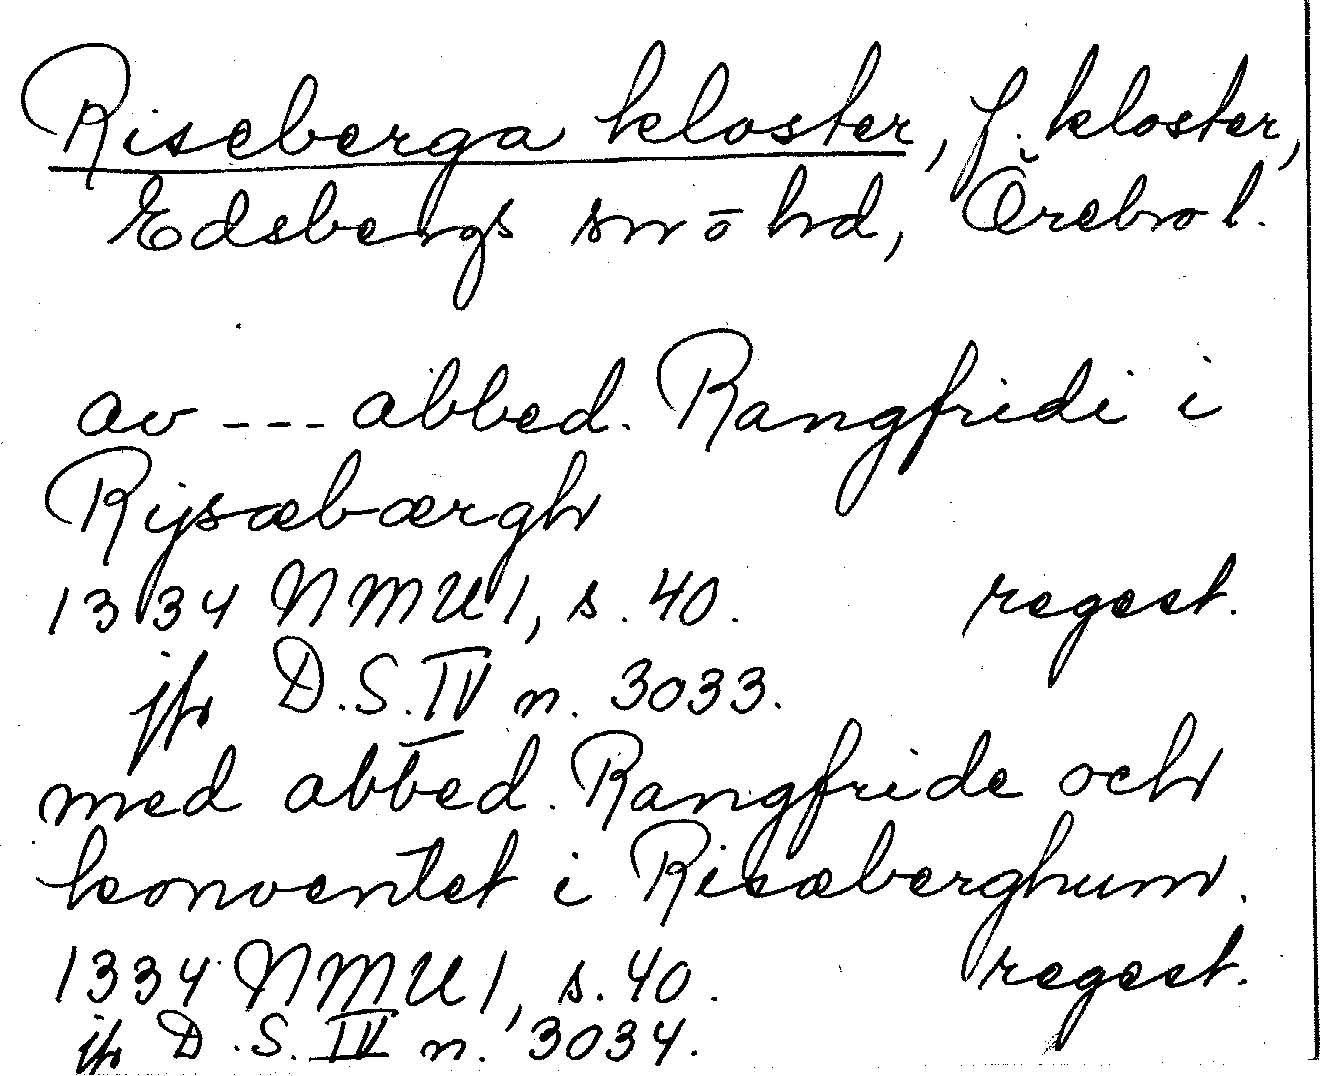 Riseberga kloster, f. kloster,
Edsbergs sn o hd, Örebro l.
av --- abbed. Rangfridi i
Rijsæbærgh
1334 NMU 1, s. 40. regest.
jfr D.S. IV n. 3033.
med abbed. Rangfride och
konventet i Risæberghum.
1334 NMU 1, s. 40. regest.
jfr D.S. IV n. 3034.